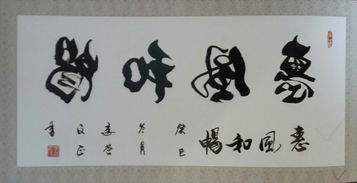 惠風和暢
惠風和暢
癸巳
冬月
書